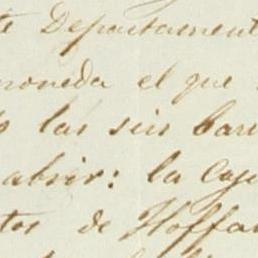 te Departament
moneda el que
las sin bar
abrir: la Caj
tos de Hoffa